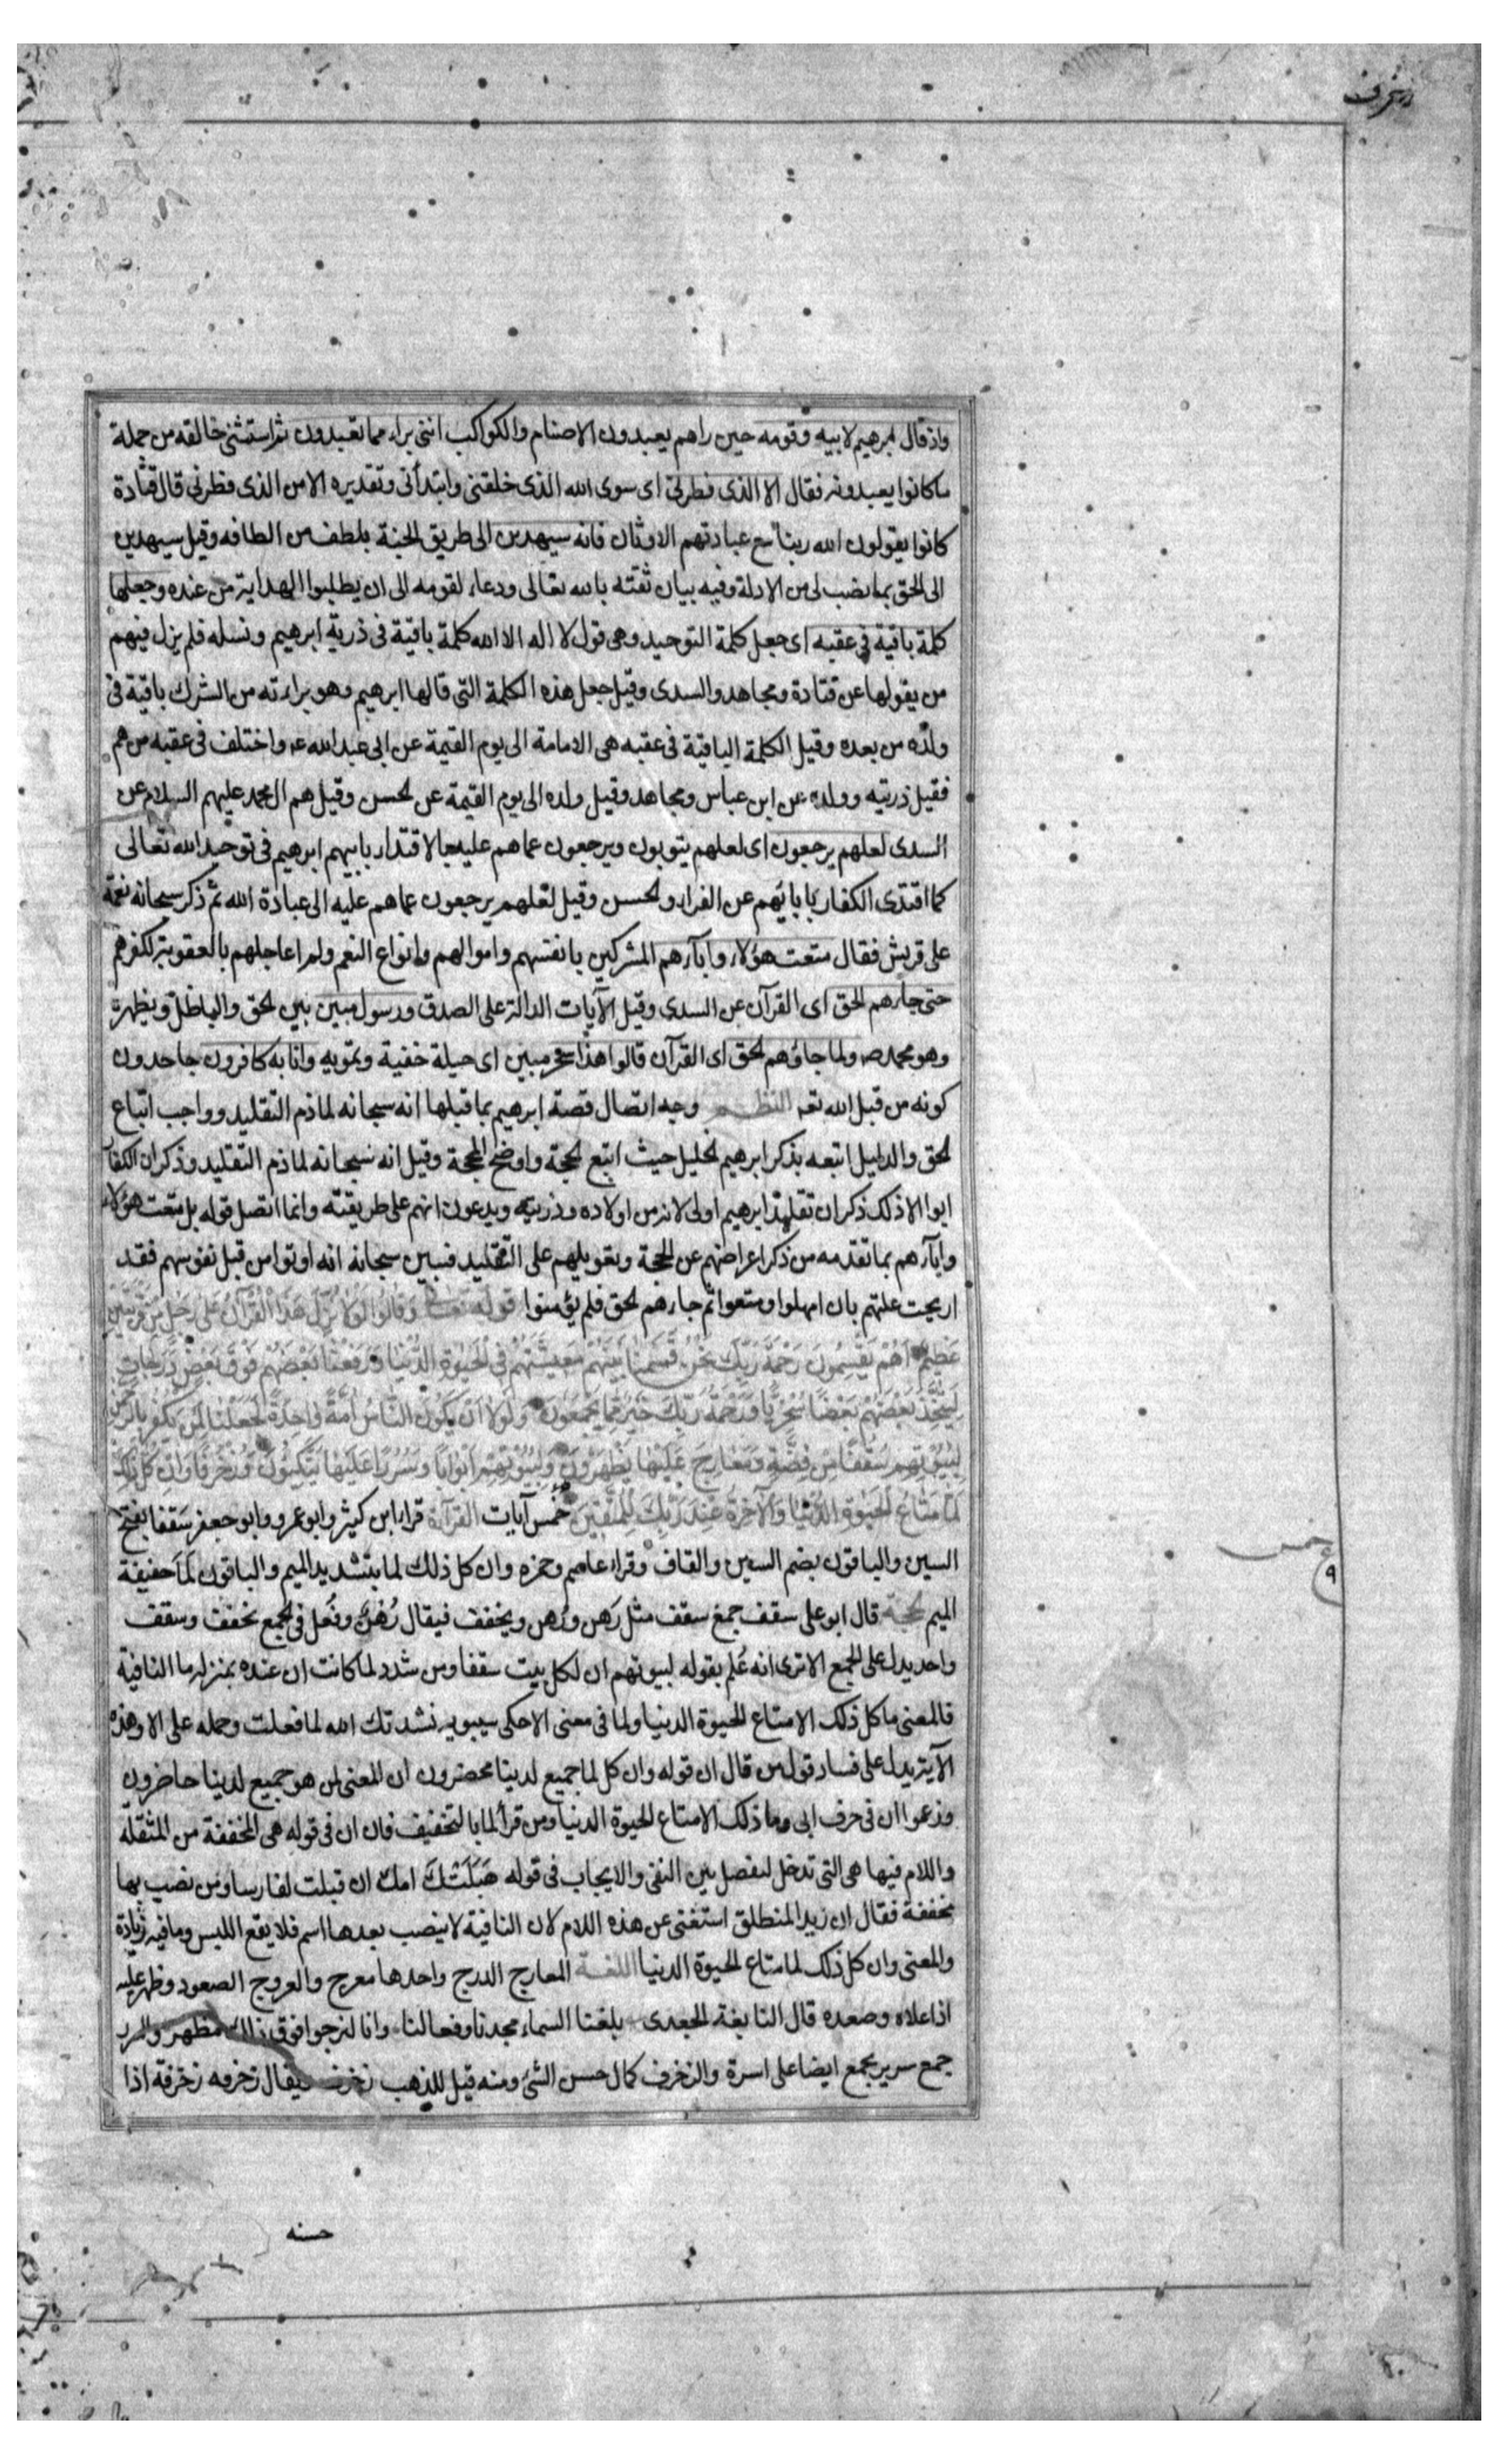 زخرف
واذ قال ابرهيم لابيه وقومه حين راهم يعبدون الاصنام والكواكب اننى براء مما تعبدون ثم استثنى خالقه من جملة
ما كانوا يعبدونه فقال الا الذى فطرنى اى سوى الله الذى خلقنى وابتدأنى وتقديره الا من الذى فطرنى قال قتادة
كانوا يقولون الله ربنا مع عبادتهم الاوثان فانه سيهدين الى طريق الجنة بلطف من الطافه وقيل سيهدين
الى الحق بما نصب لى من الادلة وفيه بيان ثقته بالله تعالى ودعاء لقومه الى ان يطلبوا الهداية من عنده وجعلها
كلمة باقية فى عقبه اى جعل كلمة التوحيد وهى قول لا اله الا الله كلمة باقية فى ذرية ابرهيم ونسله فلم يزل فيهم
من يقولها عن قتادة ومجاهد والسدى وقيل جعل هذه الكلمة التى قالها ابرهيم وهو براءته من الشرك باقية فى
ولده من بعده وقيل الكلمة الباقية فى عقبه هى الامامة الى يوم القيمة عن ابى عبد الله ع واختلف فى عقبه من هم
فقيل ذريته وولده عن ابن عباس ومجاهد وقيل ولده الى يوم القيمة عن الحسن وقيل هم ال محمد عليهم السلام عن
السدى لعلهم يرجعون اى لعلهم يتوبون ويرجعون عما هم عليه الاقتداء بابيهم ابرهيم فى توحيد الله تعالى
كما اقتدى الكفار بابائهم عن الفراء والحسن وقيل لعلهم يرجعون عما هم عليه الى عبادة الله ثم ذكر سبحانه نعمة
على قريش فقال متعت هؤلاء وابآءهم المشركين بانفسهم واموالهم وانواع النعم ولم اعاجلهم بالعقوبة لكفرهم
حتى جاءهم الحق اى القرآن عن السدى وقيل الآيات الدالة على الصدق ورسول مبين يبين الحق والباطل ويظهره
وهو محمد ص ولما جاءهم الحق اى القرآن قالوا هذا سحر مبين اى حيلة خفية وتمويه وانا به كافرون جاحدون
كونه من قبل الله تعه النظم وجه اتصال قصة ابرهيم بما قبلها انه سبحانه لما ذم التقليد وواجب اتباع
الحق والدليل اتبعه بذكر ابرهيم الخليل حيث اتبع الحجة واوضح المحجة وقيل انه سبحانه لما ذم التقليد وذكر ان الكفار
ابوا الا ذلك ذكر ان تقليد ابرهيم اولى لانه من اولاده وذريته ويدعون انهم على طريقته وانما اتصل قوله بل متعت هؤلاء
وابآءهم بما تقدمه من ذكر اعراضهم عن الحجة وتعويلهم على التقليد فبين سبحانه انه اوتوا من قبل نفوسهم فقد
ازيحت علتهم بان امهلوا ومتعوا ثم جاءهم الحق فلم يؤمنوا قوله تعالى وَقَالُوا لَوْلَا نُزِّلَ هَذَا الْقُرْآنُ عَلَى رَجُلٍ مِنَ الْقَرْيَتَيْنِ
عَظِيمٍ اَهُمْ يَقْسِمُونَ رَحْمَةَ رَبِّكَ نَحْنُ قَسَمْنَا بَيْنَهُمْ مَعِيشَتَهُمْ فِى الْحَيٰوةِ الدُّنْيَا وَرَفَعْنَا بَعْضَهُمْ فَوْقَ بَعْضٍ دَرَجَاتٍ
لِيَتَّخِذَ بَعْضُهُمْ بَعْضًا سُخْرِيًّا وَرَحْمَةُ رَبِّكَ خَيْرٌ مِمَّا يَجْمَعُونَ وَلَوْلَا اَنْ يَكُونَ النَّاسُ اُمَّةً وَاحِدَةً لَجَعَلْنَا لِمَنْ يَكْفُرُ بِالرَّحْمٰنِ
لِبُيُوتِهِمْ سُقُفًا مِنْ فِضَّةٍ وَمَعَارِجَ عَلَيْهَا يَظْهَرُونَ وَلِبُيُوتِهِمْ اَبْوَابًا وَسُرُرًا عَلَيْهَا يَتَّكِئُونَ وَزُخْرُفًا وَاِنْ كُلُّ ذٰلِكَ
لَمَّا مَتَاعُ الْحَيٰوةِ الدُّنْيَا وَالْآخِرَةُ عِنْدَ رَبِّكَ لِلْمُتَّقِينَ خمس آيات القرآءة قراء ابن كثير وابو عمرو وابو جعفر سَقفا بفتح
السين والباقون بضم السين والقاف وقراء عاصم وحمزه وان كل ذلك لما بتشديد الميم والباقون لَمَا خفيفة
الميم الحجة قال ابو على سقف جمع سقف مثل رَهن ورُهن ويخفف فيقال رُهْن وفُعل فى الجمع يخفف وسقف
واحد يدل على الجمع الا ترى انه عُلم بقوله لبيوتهم ان لكل بيت سقفا ومن شدد لما كانت ان عنده بمنزلة ما النافية
فالمعنى ما كل ذلك الا متاع الحيوة الدنيا ولما فى معنى الا حكى سيبويه نشدتك الله لما فعلت وحمله على الا وهذه
الآية يدل على فساد قول من قال ان قوله وان كل لما جميع لدينا محضرون ان المعنى لمن هو جميع لدينا حاضرون
وزعموا ان فى حرف ابى وما ذلك الا متاع الحيوة الدنيا ومن قرأ لما بالتخفيف فان ان فى قوله هى المخففة من المثقلة
واللام فيها هى التى تدخل لتفصل بين النفى والايجاب فى قوله هَبَلَتْكَ امك ان قتلت لفارسا ومن نصب بها
مخففة فقال ان زيدا لمنطلق استغنى عن هذه اللام لان النافية لا ينصب بعدها اسم فلا يقع اللبس وما فيه زيادة
والمعنى وان كل ذلك لما متاع الحيوة الدنيا اللغة المعارج الدرج واحدها معرج والعروج الصعود وظهر عليه
اذا علاه وصعده قال النابغة الجعدى بلغنا السماء مجدنا وفعالنا وانا لنرجوا فوق ذلك مظهر والسرر
جمع سرير يجمع ايضا على اسرة والزخرف كمال حسن الشئ ومنه قيل للذهب زخرف يقال زخرفه زخرفة اذا
خمس
٩
حسنه